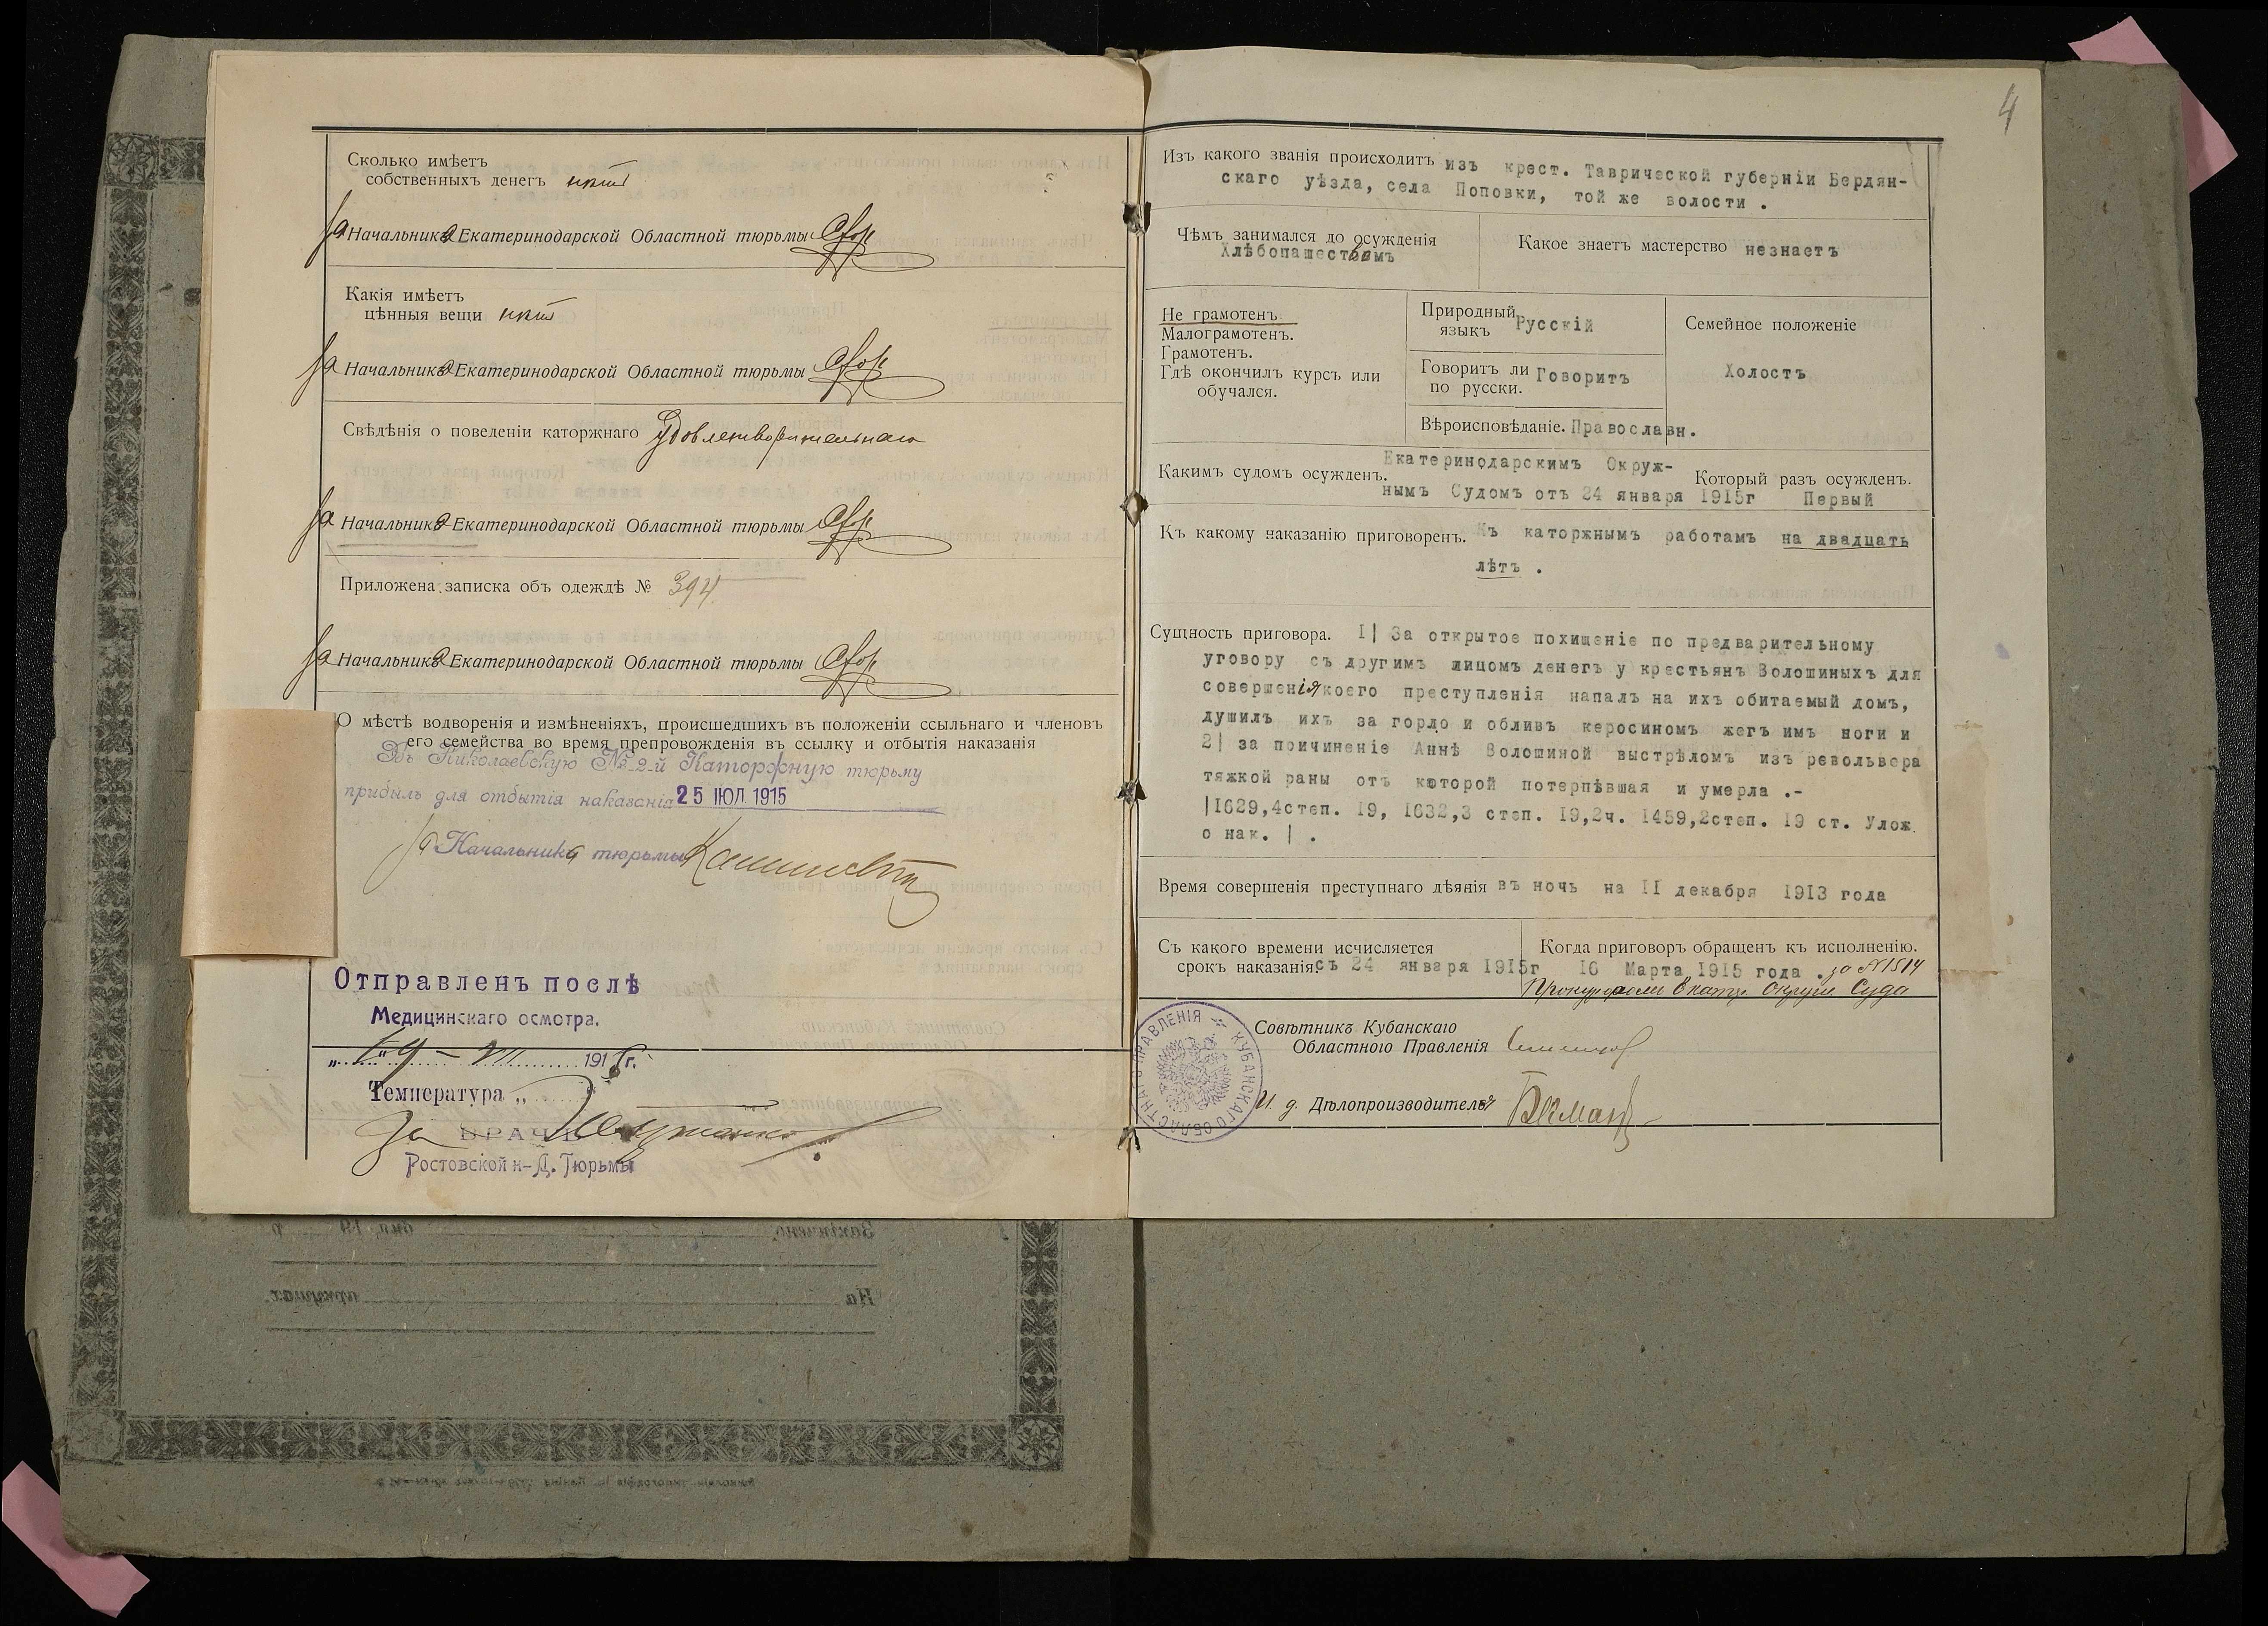 Сколько имѣетъ
собственныхъ денегъ нѣтъ
За Начальника Екатеринодарской Областной тюрьмы
Какія имѣетъ
цѣнныя вещи нѣтъ
За Начальника Екатеринодарской Областной тюрьмы
Свѣдѣнія о поведеніи каторжнаго удовлетворительнаго
За Начальника Екатеринодарской Областной тюрьмы
Приложена записка объ одеждѣ № 394
За Начальника Екатеринодарской Областной тюрьмы
О мѣстѣ водворенія и измѣненіяхъ, происшедшихъ въ положеніи ссыльнаго и членовъ
его семейства во время препровожденія въ ссылку и отбытія наказанія
Въ Николаевскую № 2-й Каторжную тюрьму
прибылъ для отбытія наказанія 25 ІЮЛ. 1915
За Начальника тюрьмы
Отправленъ послѣ
Медицинскаго осмотра.
191 г.
Температура „
За ВРАЧЪ
Ростовской н-Д. Тюрьмы
4
Изъ какого званія происходитъ изъ крест. Таврической губерніи Бердян-
скаго уѣзда, села Поповки, той же волости .
Чѣмъ занимался до осужденія
Хлѣбопашествомъ
Какое знаетъ мастерство незнаетъ
Не грамотенъ.
Малограмотенъ.
Грамотенъ.
Гдѣ окончилъ курсъ или
обучался.
Природный
языкъ Русскій
Говоритъ ли
по русски. Говоритъ
Вѣроисповѣданіе. Православн.
Семейное положеніе
Холостъ
Какимъ судомъ осужденъ. Екатеринодарскимъ Окруж-
нымъ Судомъ отъ 24 января 1915г
Который разъ осужденъ.
Первый
Къ какому наказанію приговоренъ. Къ каторжнымъ работамъ на двадцать
лѣтъ .
Сущность приговора. I| За открытое похищеніе по предварительному
уговору съ другимъ лицомъ денегъ у крестьянъ Волошиныхъ для
совершенія коего преступленія напалъ на ихъ обитаемый домъ,
душилъ ихъ за горло и обливъ керосиномъ жегъ имъ ноги и
2| за причиненіе Аннѣ Волошиной выстрѣломъ изъ револьвера
тяжкой раны отъ которой потерпѣвшая и умерла .-
|I629,4степ. I9, I632,3 степ. I9,2ч. I459,2степ. I9 ст. Улож.
о нак. | .
Время совершенія преступнаго дѣянія въ ночь на II декабря I9I3 года
Съ какого времени исчисляется
срокъ наказанія съ 24 января I9I5г
Когда приговоръ обращенъ къ исполненію.
I6 Марта I9I5 года . за № 1514
Прокуроромъ Екатер. Окружн. Суда
Совѣтникъ Кубанскаго
Областного Правленія
И. д. Дѣлопроизводителя
КУБАНСКАГО ОБЛАСТНАГО ПРАВЛЕНІЯ